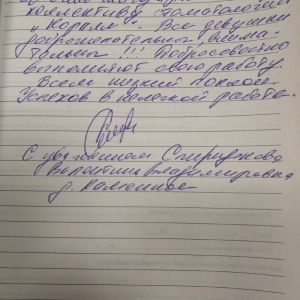 коллективу стоматологии
"Король". Все девушки
доброжелательны внима-
тельны!!! Добросовестно
выполняют свою работу.
Всем низкий поклон.
Успехов в нелегкой работе.
С уважением Спиридонова
Валентина Владимировна
д.